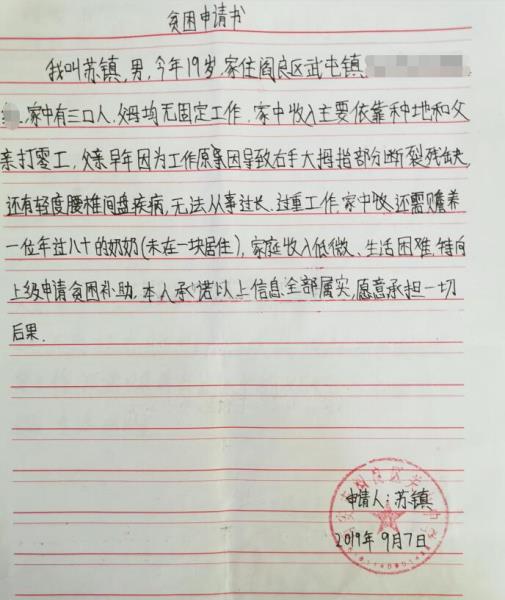 贫困申请书
我叫苏镇,男,今年19岁.家住阎良区武屯镇
.家中有三口人.父母均无固定工作.家中收入主要依靠种地和父
亲打零工,父亲早年因为工作原因导致右手大拇指部分断裂残缺,
还有轻度腰椎间盘疾病,无法从事过长、过重工作.家中收还需赡养
一位年过八十的奶奶(未在一块居住),家庭收入低微、生活困难.特向
上级申请贫困补助.本人承诺以上信息全部属实,愿意承担一切
后果.
申请人:苏镇
2019年9月7日